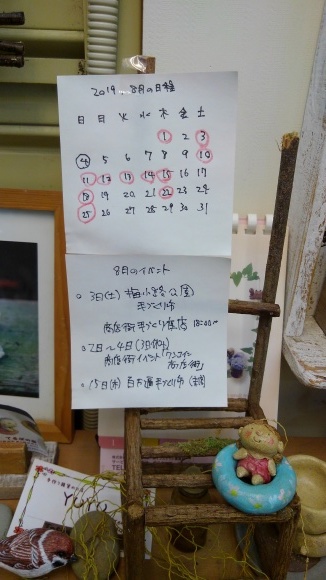 2019 8月の日程
日 月 火 水 木 金 土
1 2 3
4 5 6 7 8 9 10
11 12 13 14 15 16 17
18 19 20 21 22 23 24
25 26 27 28 29 30 31
8月のイベント
○ 3日(土) 梅小路公園
手づくり市
商店街手づくり夜店 18:00〜
○ 2日〜4日(3日休)
商店街イベント「ワンコイン
商店街」
○ 15日(木) 百万遍手づくり市
TEL